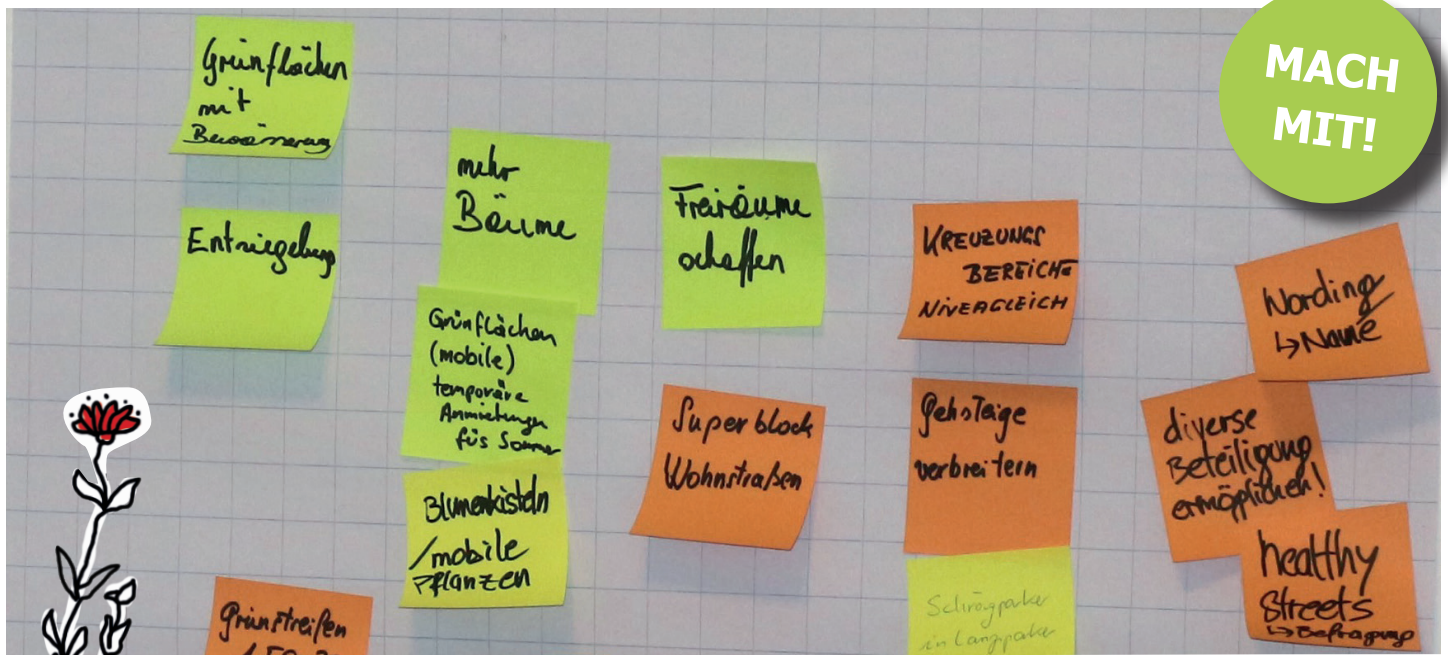 Grünflächen
mit
Bewässerung
Entsiegelung
mehr
Bäume
Grünflächen
(mobile)
temporäre
Anmietungen
fürs Sommer
Blumenkisteln
/mobile
Pflanzen
Grünstreifen
Freiräume
schaffen
Superblock
Wohnstraßen
KREUZUNGS
BEREICHE
NIVEAGLEICH
Gehsteige
verbreitern
Schrägparker
in Längsparker
MACH
MIT!
Wording
↳Name
diverse
Beteiligung
ermöglichen!
healthy
Streets
↳Befragung